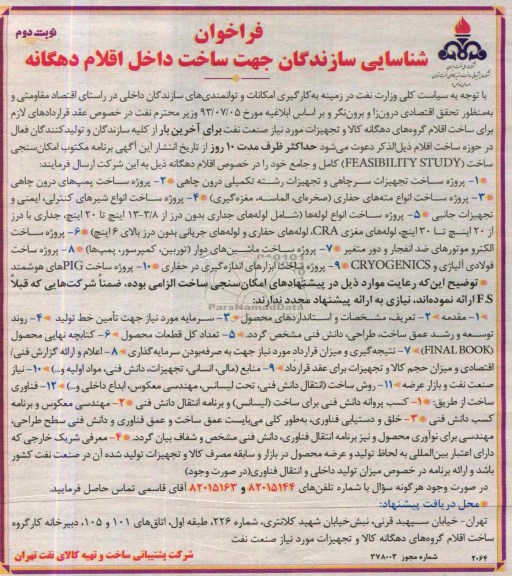 فراخوان
نوبت دوم
شناسایی سازندگان جهت ساخت داخل اقلام دهگانه
با توجه به سیاست کلی وزارت نفت در زمینه به‌کارگیری امکانات و توانمندی‌های سازندگان داخلی در راستای اقتصاد مقاومتی و
به‌منظور تحقق اقتصادی درون‌زا و برون‌نگر و بر اساس ابلاغیه مورخ ۹۳/۰۷/۰۵ وزیر محترم نفت در خصوص عقد قراردادهای لازم
برای ساخت اقلام گروه‌های دهگانه کالا و تجهیزات مورد نیاز صنعت نفت برای آخرین بار از کلیه سازندگان و تولیدکنندگان فعال
در حوزه ساخت اقلام ذیل‌الذکر دعوت می‌شود حداکثر ظرف مدت ۱۰ روز از تاریخ انتشار این آگهی برنامه مکتوب امکان‌سنجی
ساخت (FEASIBILITY STUDY) کامل و جامع خود را در خصوص اقلام دهگانه ذیل به این شرکت ارسال فرمایند:
۱- پروژه ساخت تجهیزات سرچاهی و تجهیزات رشته تکمیلی درون چاهی ۲- پروژه ساخت پمپ‌های درون چاهی
۳- پروژه ساخت انواع مته‌های حفاری (صخره‌ای، الماسه، مغزه‌گیری) ۴- پروژه ساخت انواع شیرهای کنترلی، ایمنی و
تجهیزات جانبی ۵- پروژه ساخت انواع لوله‌ها (شامل لوله‌های جداری بدون درز از ۳/۸-۱۳ اینچ تا ۲۰ اینچ، جداری با درز
از ۲۰ اینچ تا ۳۰ اینچ، لوله‌های مغزی CRA، لوله‌های حفاری و لوله‌های جریانی بدون درز بالای ۶ اینچ) ۶- پروژه ساخت
الکترو موتورهای ضد انفجار و دور متغیر ۷- پروژه ساخت ماشین‌های دوار (توربین، کمپرسور، پمپ‌ها) ۸- پروژه ساخت
فولادی آلیاژی و CRYOGENICS ۹- پروژه ساخت ابزارهای اندازه‌گیری در حفاری ۱۰- پروژه ساخت PIGهای هوشمند
توضیح این‌که رعایت موارد ذیل در پیشنهادهای امکان‌سنجی ساخت الزامی بوده، ضمناً شرکت‌هایی که قبلاً
F.S ارائه نموده‌اند، نیازی به ارائه پیشنهاد مجدد ندارند:
۱- مقدمه ۲- تعریف، مشخصات و استانداردهای محصول ۳- سرمایه مورد نیاز جهت تأمین خط تولید ۴- روند
توسعه و رشد عمق ساخت، طراحی، دانش فنی مشخص گردد. ۵- تعداد کل قطعات محصول ۶- کتابچه نهایی محصول
(FINAL BOOK) ۷- نتیجه‌گیری و میزان قرارداد مورد نیاز جهت به صرفه‌بودن سرمایه‌گذاری ۸- اعلام و ارائه گزارش فنی/
اقتصادی و میزان حجم کالا و تجهیزات برای عقد قرارداد ۹- منابع (مالی، انسانی، تجهیزات، دانش فنی، مواد اولیه و...) ۱۰- نیاز
صنعت نفت و بازار عرضه ۱۱- روش ساخت (انتقال دانش فنی، تحت لیسانس، مهندسی معکوس، ابداع داخلی و...) ۱۲- فناوری
ساخت از طریق: ۱- کسب پروانه دانش فنی برای ساخت (لیسانس) و برنامه انتقال دانش فنی ۲- مهندسی معکوس و برنامه
کسب دانش فنی ۳- خلق و دستیابی فناوری، به‌طور کلی می‌بایست عمق ساخت و عمق فناوری و دانش فنی سطح طراحی،
مهندسی برای نوآوری محصول و نیز برنامه انتقال فناوری، دانش فنی مشخص و شفاف بیان گردد. ۴- معرفی شریک خارجی که
دارای اعتبار بین‌المللی به لحاظ تولید و عرضه محصول در بازار و سابقه مصرف کالا و تجهیزات تولید شده آن در صنعت نفت کشور
باشد و ارائه برنامه در خصوص میزان تولید داخلی و انتقال فناوری(در صورت وجود)
در صورت وجود هرگونه سؤال با شماره تلفن‌های ۸۲۰۱۵۱۴۴ و ۸۲۰۱۵۱۶۳ آقای قاسمی تماس حاصل فرمایید.
محل دریافت پیشنهاد:
تهران- خیابان سپهبد قرنی، نبش‌خیابان شهید کلانتری، شماره ۲۲۶، طبقه اول، اتاق‌های ۱۰۱ و ۱۰۵، دبیرخانه کارگروه
ساخت اقلام گروه‌های دهگانه کالا و تجهیزات مورد نیاز صنعت نفت
شرکت پشتیبانی ساخت و تهیه کالای نفت تهران
شماره مجوز ۳۷۸۰۰۳
۲۰۶۴
ParsNamadData